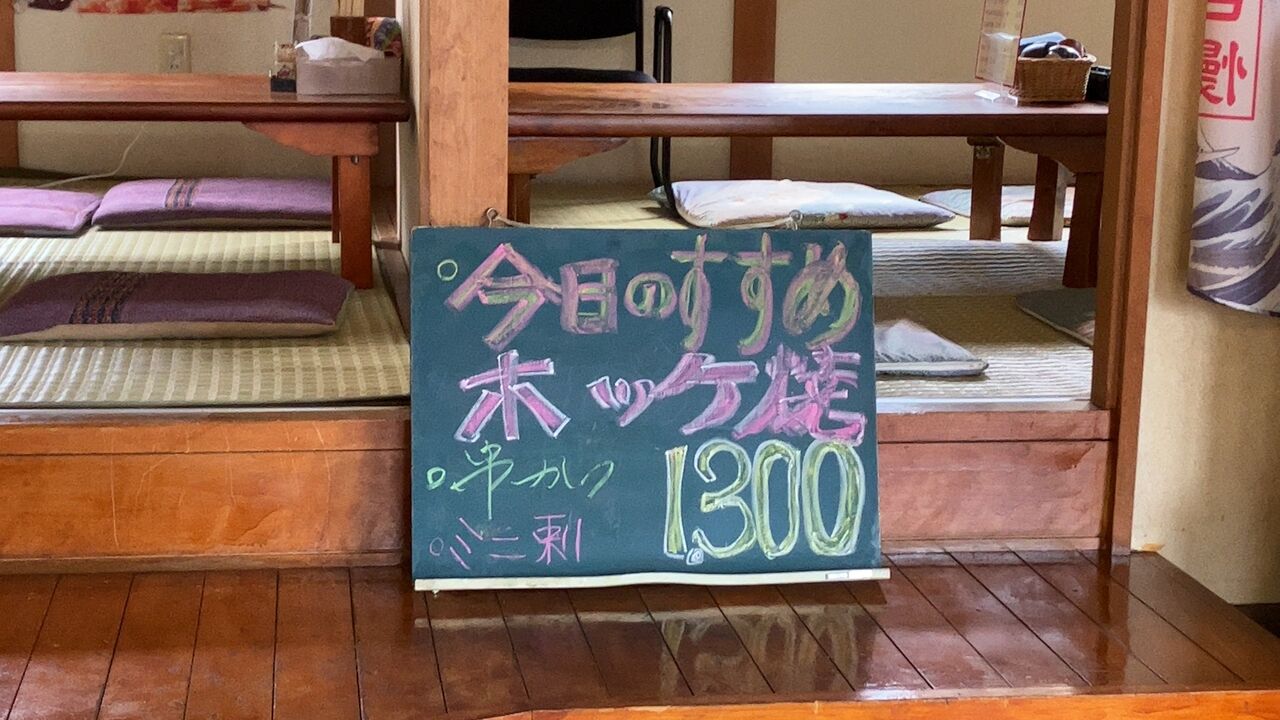 。今日のすすめ
ホッケ焼
。串かつ
。ミニ刺
1.300